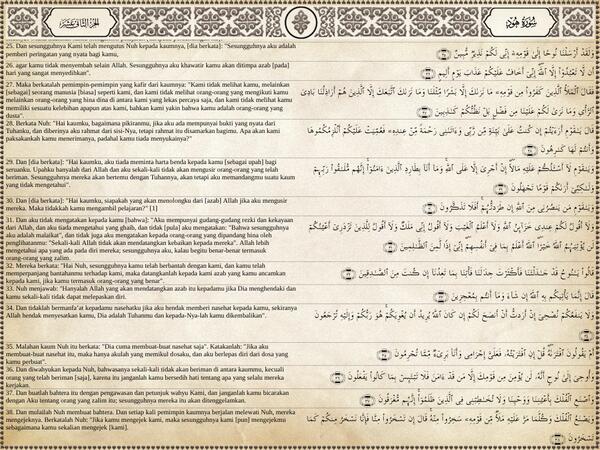 الجزء الثاني عشر
سورة هود
25. Dan sesungguhnya Kami telah mengutus Nuh kepada kaumnya, [dia berkata]: "Sesungguhnya aku adalah
pemberi peringatan yang nyata bagi kamu,
26. agar kamu tidak menyembah selain Allah. Sesungguhnya aku khawatir kamu akan ditimpa azab [pada]
hari yang sangat menyedihkan".
27. Maka berkatalah pemimpin-pemimpin yang kafir dari kaumnya: "Kami tidak melihat kamu, melainkan
[sebagai] seorang manusia [biasa] seperti kami, dan kami tidak melihat orang-orang yang mengikuti kamu
melainkan orang-orang yang hina dina di antara kami yang lekas percaya saja, dan kami tidak melihat kamu
memiliki sesuatu kelebihan apapun atas kami, bahkan kami yakin bahwa kamu adalah orang-orang yang
dusta".
28. Berkata Nuh: "Hai kaumku, bagaimana pikiranmu, jika aku ada mempunyai bukti yang nyata dari
Tuhanku, dan diberinya aku rahmat dari sisi-Nya, tetapi rahmat itu disamarkan bagimu. Apa akan kami
paksakankah kamu menerimanya, padahal kamu tiada menyukainya?"
29. Dan [dia berkata]: "Hai kaumku, aku tiada meminta harta benda kepada kamu [sebagai upah] bagi
seruanku. Upahku hanyalah dari Allah dan aku sekali-kali tidak akan mengusir orang-orang yang telah
beriman. Sesungguhnya mereka akan bertemu dengan Tuhannya, akan tetapi aku memandangmu suatu kaum
yang tidak mengetahui".
30. Dan [dia berkata]: "Hai kaumku, siapakah yang akan menolongku dari [azab] Allah jika aku mengusir
mereka. Maka tidakkah kamu mengambil pelajaran?" [1]
31. Dan aku tidak mengatakan kepada kamu [bahwa]: "Aku mempunyai gudang-gudang rezki dan kekayaan
dari Allah, dan aku tiada mengetahui yang ghaib, dan tidak [pula] aku mengatakan: "Bahwa sesungguhnya
aku adalah malaikat", dan tidak juga aku mengatakan kepada orang-orang yang dipandang hina oleh
penglihatanmu: "Sekali-kali Allah tidak akan mendatangkan kebaikan kepada mereka". Allah lebih
mengetahui apa yang ada pada diri mereka; sesungguhnya aku, kalau begitu benar-benar termasuk
orang-orang yang zalim.
32. Mereka berkata: "Hai Nuh, sesungguhnya kamu telah berbantah dengan kami, dan kamu telah
memperpanjang bantahanmu terhadap kami, maka datangkanlah kepada kami azab yang kamu ancamkan
kepada kami, jika kamu termasuk orang-orang yang benar".
33. Nuh menjawab: "Hanyalah Allah yang akan mendatangkan azab itu kepadamu jika Dia menghendaki dan
kamu sekali-kali tidak dapat melepaskan diri.
34. Dan tidaklah bermanfa'at kepadamu nasehatku jika aku hendak memberi nasehat kepada kamu, sekiranya
Allah hendak menyesatkan kamu, Dia adalah Tuhanmu dan kepada-Nya-lah kamu dikembalikan".
35. Malahan kaum Nuh itu berkata: "Dia cuma membuat-buat nasehat saja". Katakanlah: "Jika aku
membuat-buat nasehat itu, maka hanya akulah yang memikul dosaku, dan aku berlepas diri dari dosa yang
kamu perbuat".
36. Dan diwahyukan kepada Nuh, bahwasanya sekali-kali tidak akan beriman di antara kaummu, kecuali
orang yang telah beriman [saja], karena itu janganlah kamu bersedih hati tentang apa yang selalu mereka
kerjakan.
37. Dan buatlah bahtera itu dengan pengawasan dan petunjuk wahyu Kami, dan janganlah kamu bicarakan
dengan Aku tentang orang-orang yang zalim itu; sesungguhnya mereka itu akan ditenggelamkan.
38. Dan mulailah Nuh membuat bahtera. Dan setiap kali pemimpin kaumnya berjalan melewati Nuh, mereka
mengejeknya. Berkatalah Nuh: "Jika kamu mengejek kami, maka sesungguhnya kami [pun] mengejekmu
sebagaimana kamu sekalian mengejek [kami].
وَلَقَدْ أَرْسَلْنَا نُوحًا إِلَىٰ قَوْمِهِۦٓ إِنِّى لَكُمْ نَذِيرٌ مُّبِينٌ ٢٥
أَن لَّا تَعْبُدُوٓا۟ إِلَّا ٱللَّهَ إِنِّىٓ أَخَافُ عَلَيْكُمْ عَذَابَ يَوْمٍ أَلِيمٍ ٢٦
فَقَالَ ٱلْمَلَأُ ٱلَّذِينَ كَفَرُوا۟ مِن قَوْمِهِۦ مَا نَرَىٰكَ إِلَّا بَشَرًا مِّثْلَنَا وَمَا نَرَىٰكَ ٱتَّبَعَكَ إِلَّا ٱلَّذِينَ هُمْ أَرَاذِلُنَا بَادِىَ
ٱلرَّأْىِ وَمَا نَرَىٰ لَكُمْ عَلَيْنَا مِن فَضْلٍۭ بَلْ نَظُنُّكُمْ كَٰذِبِينَ ٢٧
قَالَ يَٰقَوْمِ أَرَءَيْتُمْ إِن كُنتُ عَلَىٰ بَيِّنَةٍ مِّن رَّبِّى وَءَاتَىٰنِى رَحْمَةً مِّنْ عِندِهِۦ فَعُمِّيَتْ عَلَيْكُمْ أَنُلْزِمُكُمُوهَا
وَأَنتُمْ لَهَا كَٰرِهُونَ ٢٨
وَيَٰقَوْمِ لَآ أَسْـَٔلُكُمْ عَلَيْهِ مَالًا إِنْ أَجْرِىَ إِلَّا عَلَى ٱللَّهِ وَمَآ أَنَا۠ بِطَارِدِ ٱلَّذِينَ ءَامَنُوٓا۟ إِنَّهُم مُّلَٰقُوا۟ رَبِّهِمْ
وَلَٰكِنِّىٓ أَرَىٰكُمْ قَوْمًا تَجْهَلُونَ ٢٩
وَيَٰقَوْمِ مَن يَنصُرُنِى مِنَ ٱللَّهِ إِن طَرَدتُّهُمْ أَفَلَا تَذَكَّرُونَ ٣٠
وَلَآ أَقُولُ لَكُمْ عِندِى خَزَآئِنُ ٱللَّهِ وَلَآ أَعْلَمُ ٱلْغَيْبَ وَلَآ أَقُولُ إِنِّى مَلَكٌ وَلَآ أَقُولُ لِلَّذِينَ تَزْدَرِىٓ أَعْيُنُكُمْ
لَن يُؤْتِيَهُمُ ٱللَّهُ خَيْرًا ٱللَّهُ أَعْلَمُ بِمَا فِىٓ أَنفُسِهِمْ إِنِّىٓ إِذًا لَّمِنَ ٱلظَّٰلِمِينَ ٣١
قَالُوا۟ يَٰنُوحُ قَدْ جَٰدَلْتَنَا فَأَكْثَرْتَ جِدَٰلَنَا فَأْتِنَا بِمَا تَعِدُنَآ إِن كُنتَ مِنَ ٱلصَّٰدِقِينَ ٣٢
قَالَ إِنَّمَا يَأْتِيكُم بِهِ ٱللَّهُ إِن شَآءَ وَمَآ أَنتُم بِمُعْجِزِينَ ٣٣
وَلَا يَنفَعُكُمْ نُصْحِىٓ إِنْ أَرَدتُّ أَنْ أَنصَحَ لَكُمْ إِن كَانَ ٱللَّهُ يُرِيدُ أَن يُغْوِيَكُمْ هُوَ رَبُّكُمْ وَإِلَيْهِ تُرْجَعُونَ
٣٤
أَمْ يَقُولُونَ ٱفْتَرَىٰهُ قُلْ إِنِ ٱفْتَرَيْتُهُۥ فَعَلَىَّ إِجْرَامِى وَأَنَا۠ بَرِىٓءٌ مِّمَّا تُجْرِمُونَ ٣٥
وَأُوحِىَ إِلَىٰ نُوحٍ أَنَّهُۥ لَن يُؤْمِنَ مِن قَوْمِكَ إِلَّا مَن قَدْ ءَامَنَ فَلَا تَبْتَئِسْ بِمَا كَانُوا۟ يَفْعَلُونَ ٣٦
وَٱصْنَعِ ٱلْفُلْكَ بِأَعْيُنِنَا وَوَحْيِنَا وَلَا تُخَٰطِبْنِى فِى ٱلَّذِينَ ظَلَمُوٓا۟ إِنَّهُم مُّغْرَقُونَ ٣٧
وَيَصْنَعُ ٱلْفُلْكَ وَكُلَّمَا مَرَّ عَلَيْهِ مَلَأٌ مِّن قَوْمِهِۦ سَخِرُوا۟ مِنْهُ قَالَ إِن تَسْخَرُوا۟ مِنَّا فَإِنَّا نَسْخَرُ مِنكُمْ كَمَا
تَسْخَرُونَ ٣٨